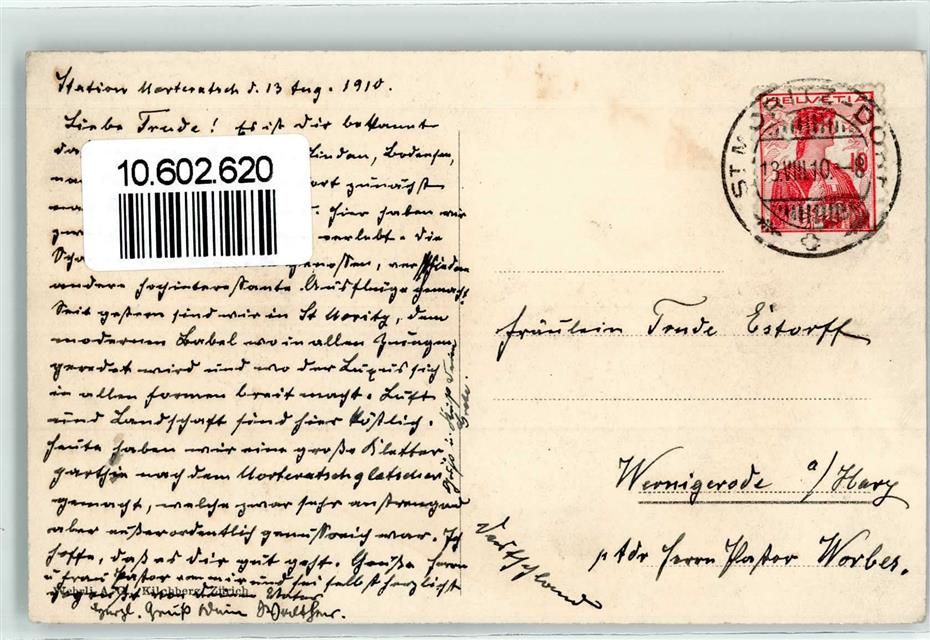 Station Morteratsch d. 13 Aug. 1910.
Liebe Trude! Es ist Dir bekannt
da Lindau, Bodensee,
na ort zunächst
Hier haben wir
verlebt. Die
genossen, verschiedene
andere hochinteressante Ausflüge gemacht.
Seit gestern sind wir in St Moritz, dem
modernen Babel wo in allen Zungen
geredet wird und wo der Luxus sich
in allen Formen breit macht. Luft
und Landschaft sind hier köstlich.
Heute haben wir eine große Kletter
parthie nach dem Morteratschgletscher
gemacht, welche zwar sehr anstrengend
aber außerordentlich genussreich war. Ich
hoffe, daß es Dir gut geht. Grüße Herrn
u Frau Pastor von mir und sei selbst herzlichst
gegrüßt von Deinem Vater
Herzl. Gruß Dein Walther.
Gruß u. Kuß Dein
Wehrli A.G., Kilchberg/Zürich
10.602.620
HELVETIA
10
ST. MORITZ-DORF
13.VIII.10.-18
Fräulein Trude Estorff
Wernigerode a/Harz
p Adr Herrn Pastor Worbes.
Deutschland